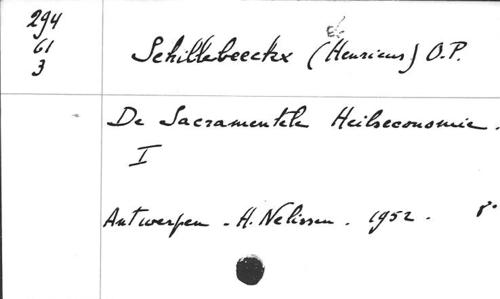 294
61
3
Schillebeeckx (Henricus) O.P.
De Sacramentele Heilseconomie.
I
Antwerpen - H. Nelissen. 1952. 8°